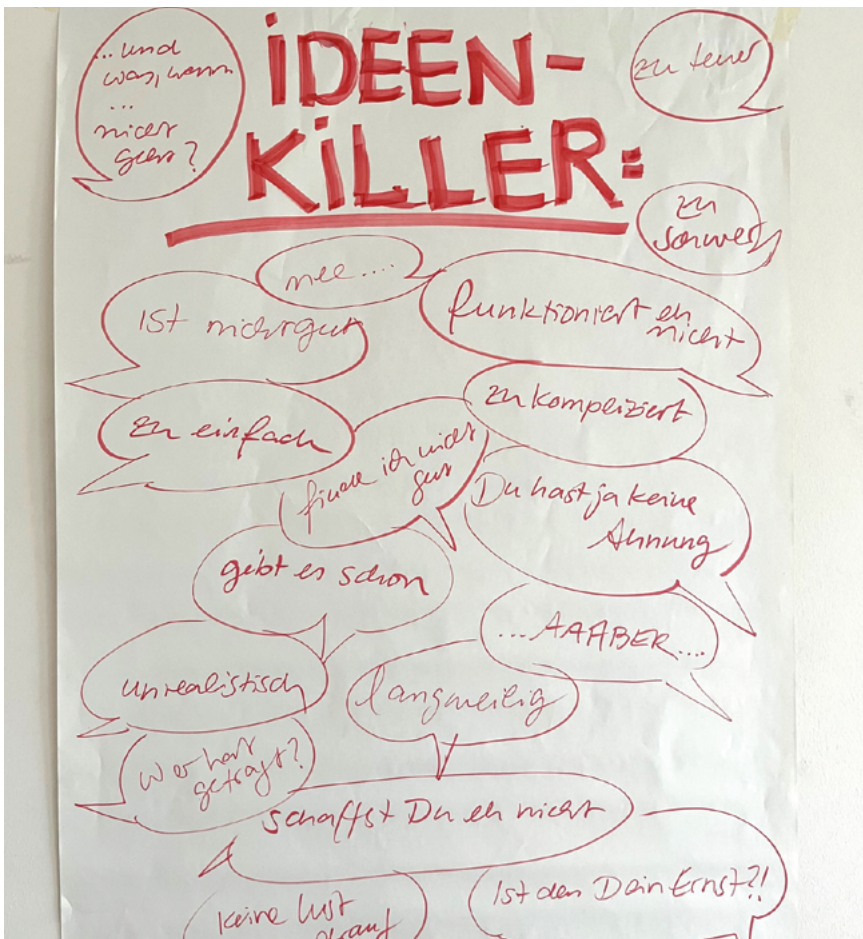 ... und
was, wenn
...
nicht
geht?
IDEEN-
KILLER:
zu teuer
zu
schwer
nee....
ist nicht gut
funktioniert eh
nicht
zu einfach
zu kompliziert
finde ich nicht
gut
Du hast ja keine
Ahnung
gibt es schon
...AAABER...
unrealistisch
langweilig
Wer hat
gefragt?
schaffst Du eh nicht
Ist das Dein Ernst?!
keine Lust